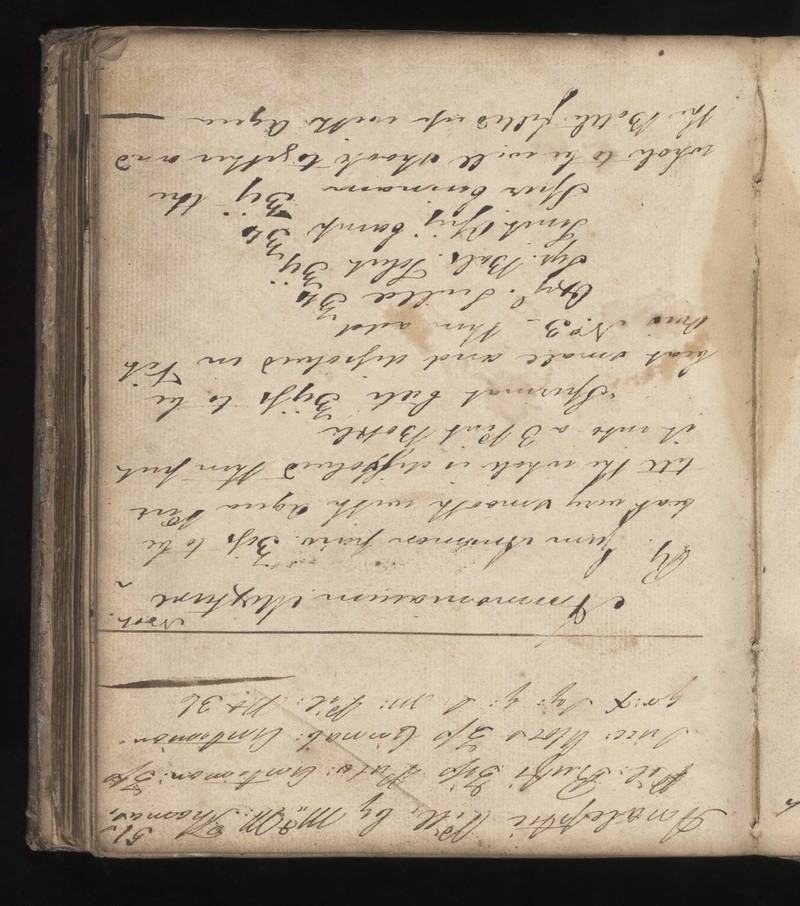 Analeptic Pill, by Mr. M. Thomas, 51.
Pil: Rufi ʒiſs Pulv: Antimon: ʒſs
Succ: Aloes ʒſs Cinnab: Antimon.
gr: x Sy: q: s m: Pil: No 36
North.
Ammoniacum Mixture
℞ Gum Ammon ʒiſs to be
beat very smooth with Aqua Pur
till the whole is diſsolved then put
it into a 3 Pint Bottle
Spermat Ceti ʒijſs to be
beat small and diſsolved in Vit
Ovi No. 3 - then add
Oxyl. Scillæ
Syr. Bals. Tolut ʒij
Tinct Opij Camph
Spir Cinnam ʒij the
whole to be well shook together and
the Bottle filled up with Aqua